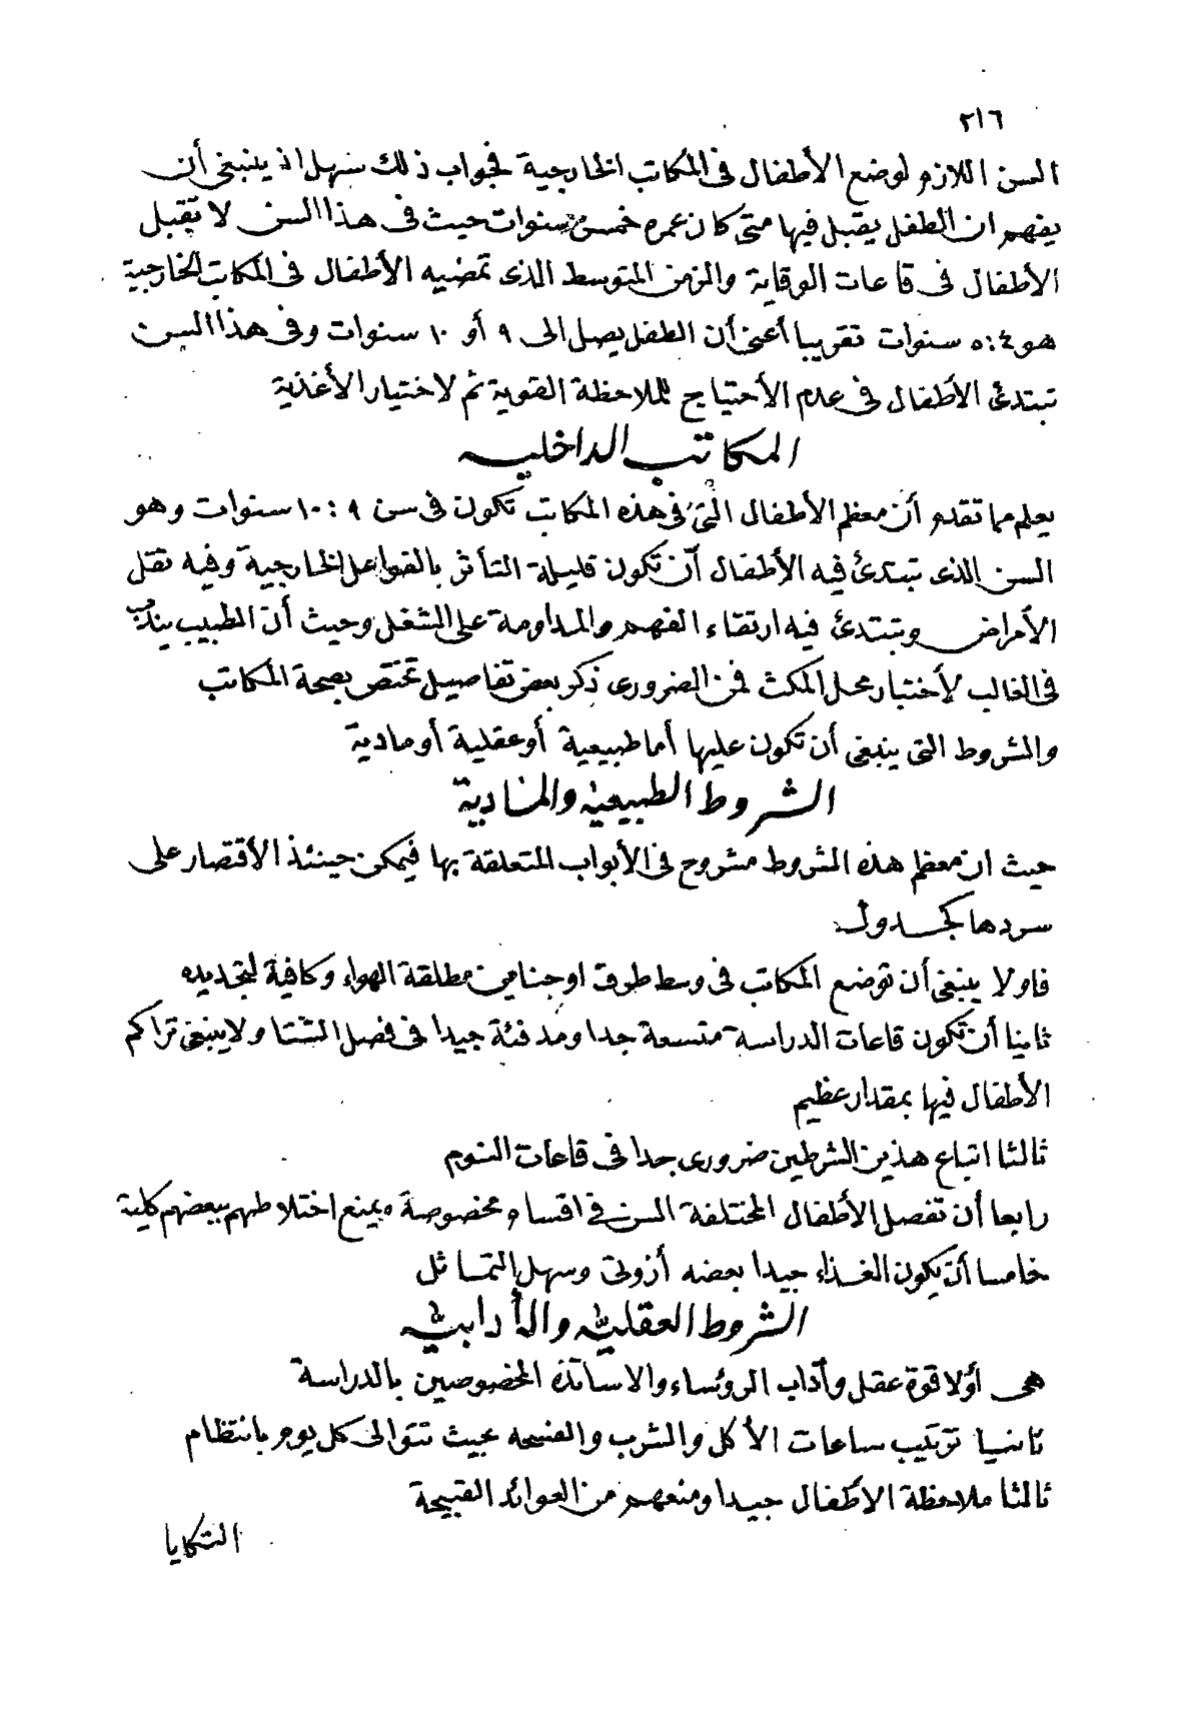 ٢١٦
السن اللازم لوضع الأطفال فى المكاتب الخارجية فجواب ذلك سهل اذ ينبغى أن
يفهم ان الطفل يقبل فيها متى كان عمره خمس سنوات حيث فى هذا السن لا تقبل
الأطفال فى قاعات الوقاية والزمن المتوسط الذى تمضيه الأطفال فى المكاتب الخارجية
هو ٤:٥ سنوات تقريبا أعنى أن الطفل يصل الى ٩ أو ١٠ سنوات وفى هذا السن
تبتدئ الأطفال فى عدم الأحتياج للملاحظة القوية ثم لاختيار الأغذية
المكاتب الداخليه
يعلم مما تقدم أن معظم الأطفال التى فى هذه المكاتب تكون فى سن ٩ : ١٠ سنوات وهو
السن الذى تبتدئ فيه الأطفال أن تكون قليلة التأثر بالفواعل الخارجية وفيه تقل
الأمراض وتبتدئ فيه ارتقاء الفهم والمداومة على الشغل وحيث أن الطبيب يندب
فى الغالب لأختبار محل المكث فمن الضرورى ذكر بعض تفاصيل تختص بصحة المكاتب
والشروط التى ينبغى أن تكون عليها أما طبيعية أو عقلية أو مادية
الشروط الطبيعيه والمادية
حيث ان معظم هذه الشروط مشروح فى الأبواب المتعلقة بها فيمكن حينئذ الأقتصار على
سردها كجدول
فاولا ينبغى أن توضع المكاتب فى وسط طرق او جناين مطلقة الهواء وكافية لتجديده
ثانيا أن تكون قاعات الدراسة متسعة جدا ومدفئة جيدا فى فصل الشتا ولا ينبغى تراكم
الأطفال فيها بمقدار عظيم
ثالثا اتباع هذين الشرطين ضرورى جدا فى قاعات النوم
رابعا أن تفصل الأطفال المختلفة السن فى اقسام مخصوصة ويمنع اختلاطهم ببعضهم كلية
خامسا أن يكون الغذاء جيدا بعضه أزوتى وسهل التماثل
الشروط العقليه والأدابيه
هى أوّلا قوة عقل وآداب الرؤساء والاساتذه المخصوصين بالدراسة
ثانيا ترتيب ساعات الأكل والشرب والفسحه بحيث تتوالى كل يوم بانتظام
ثالثا ملاحظة الاطفال جيدا ومنعهم من العوائد القبيحة
التكايا